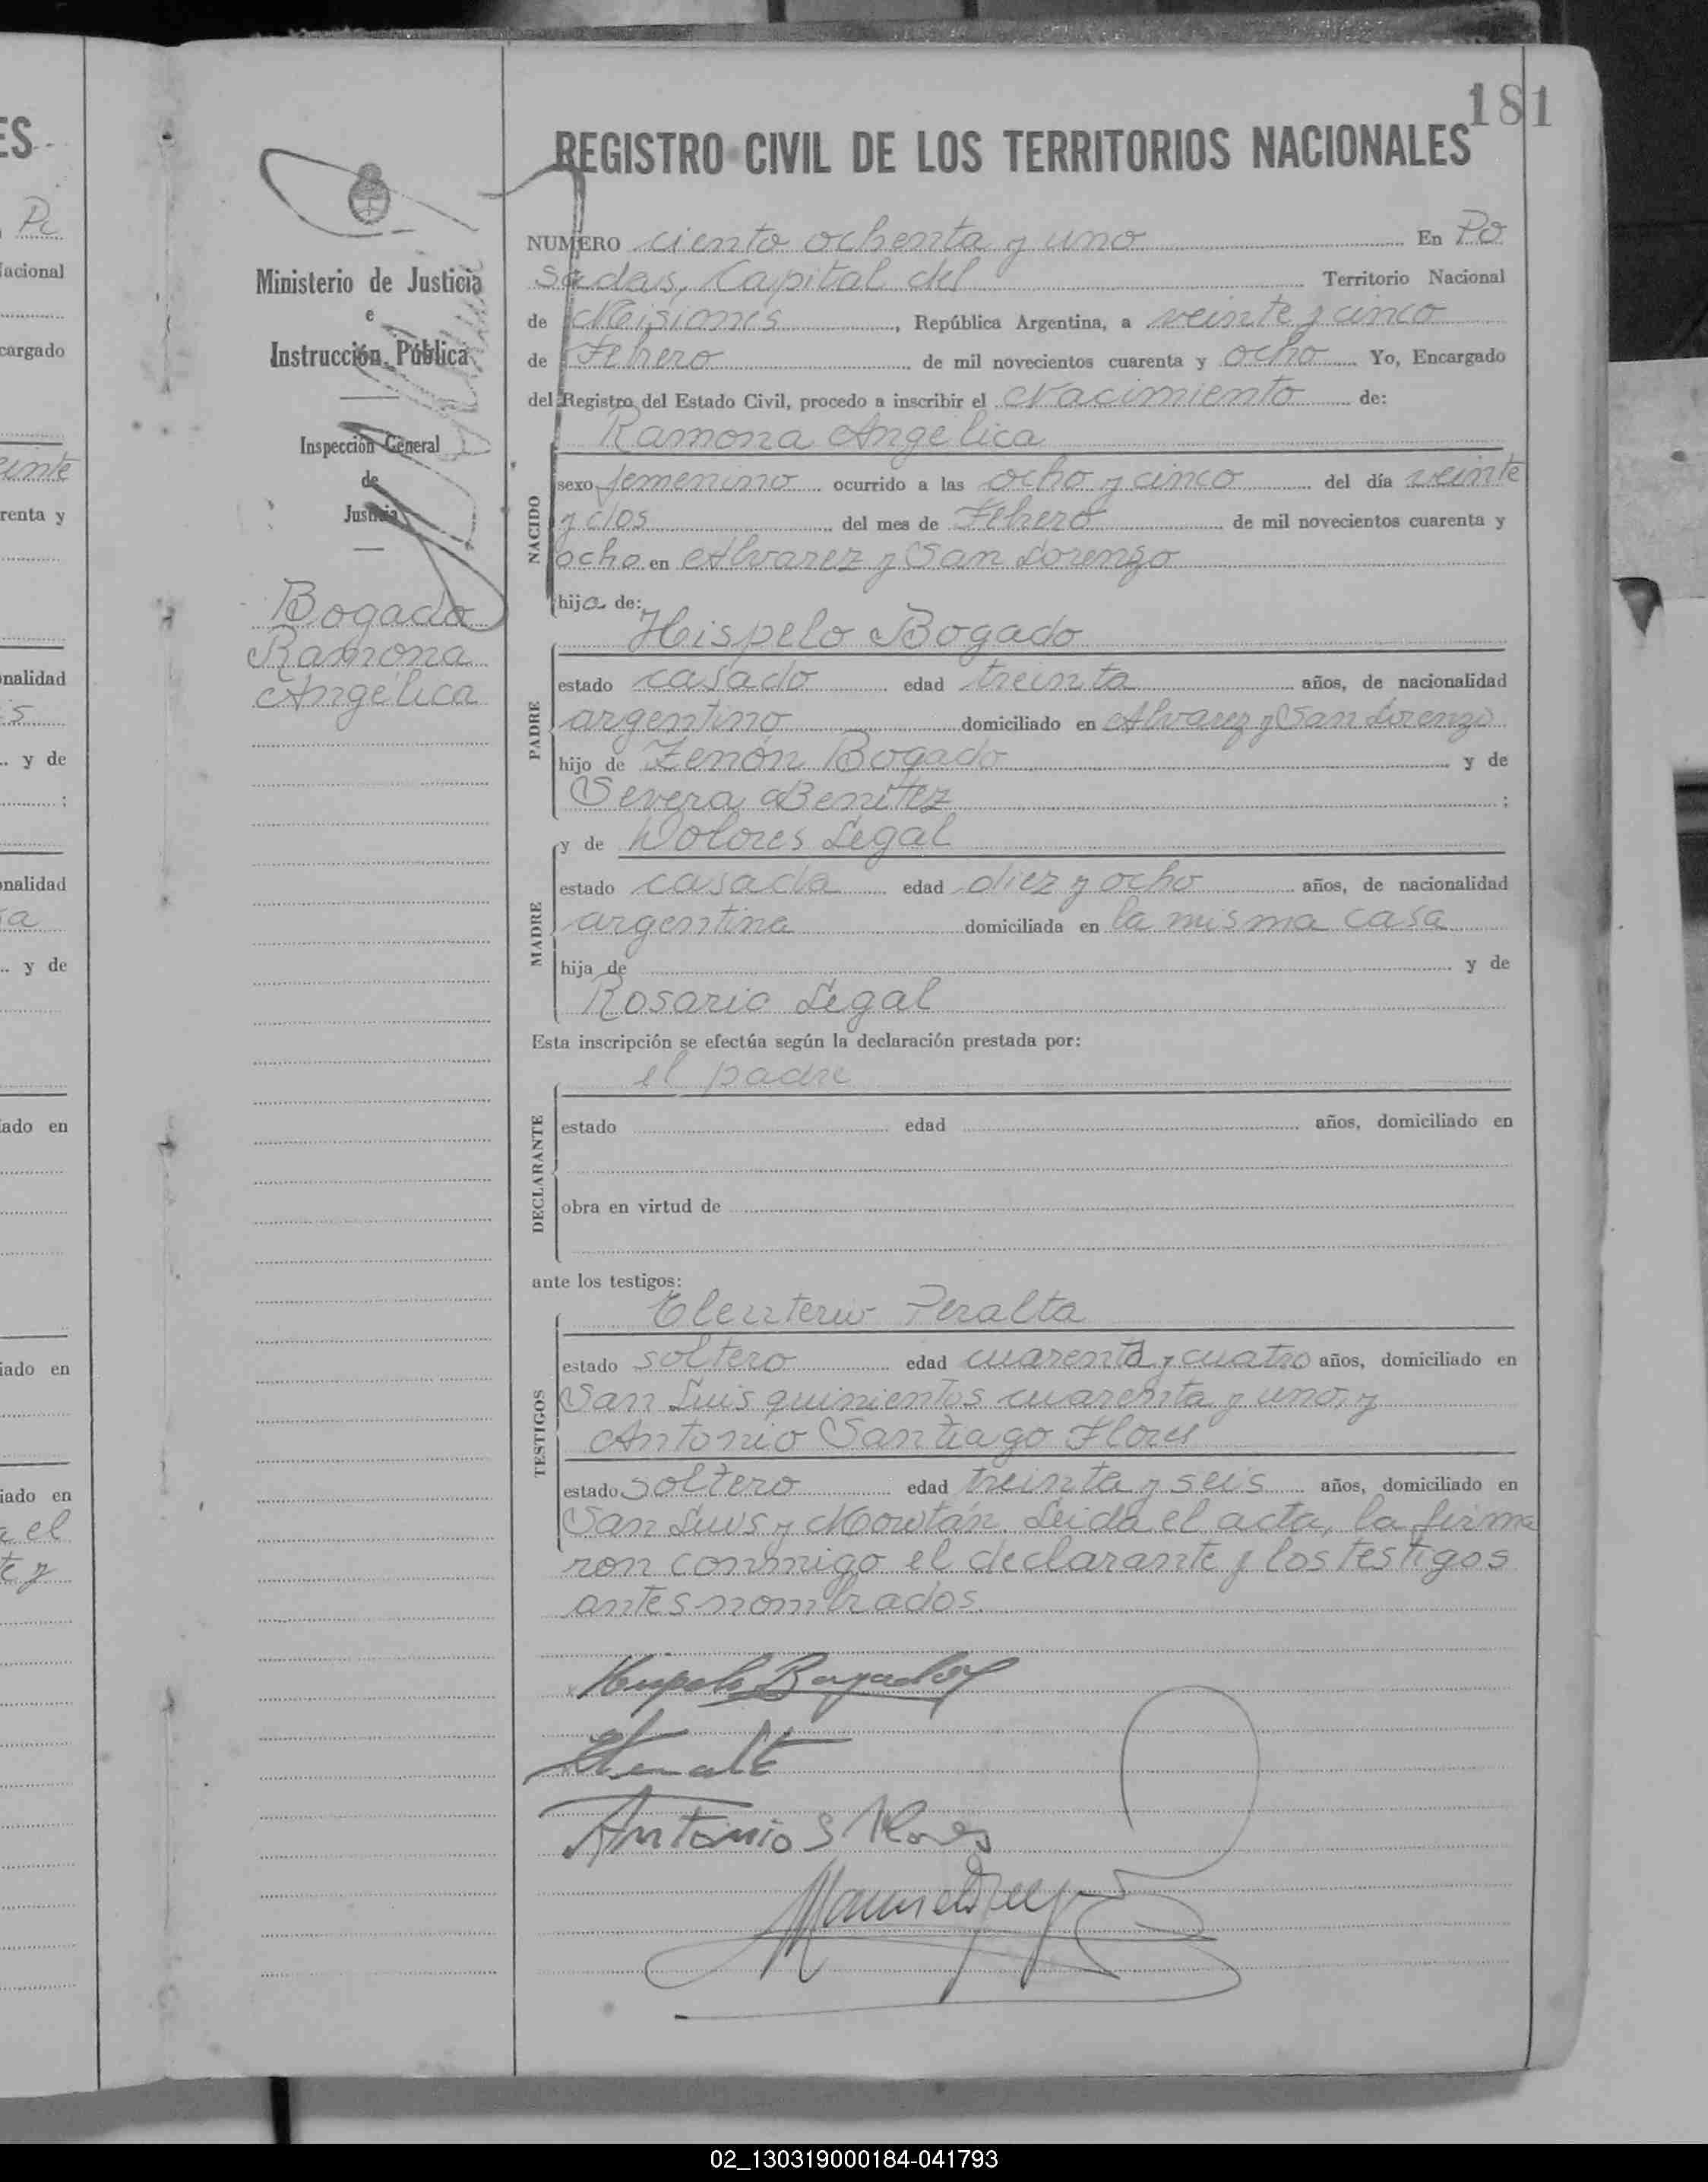 181
REGISTRO CIVIL DE LOS TERRITORIOS NACIONALES
Ministerio de Justicia
e
Instrucción Pública
Inspección General
de
Justicia
Bogado
Ramona
Angélica
NUMERO ciento ochenta y uno En Po
sadas, Capital del Territorio Nacional
de Misiones, República Argentina, a veinte y cinco
de Febrero de mil novecientos cuarenta y ocho Yo, Encargado
del Registro del Estado Civil, procedo a inscribir el Nacimiento de:
Ramona Angélica
NACIDO
sexo femenino ocurrido a las ocho y cinco del día veinte
y dos del mes de Febrero de mil novecientos cuarenta y
ocho en Alvarez y San Lorenzo
hija de:
Hispelo Bogado
PADRE
estado casado edad treinta años, de nacionalidad
argentino domiciliado en Alvarez y San Lorenzo
hijo de Zenón Bogado y de
Severa Benítez ;
y de Dolores Legal
MADRE
estado casada edad diez y ocho años, de nacionalidad
argentina domiciliada en la misma casa
hija de y de
Rosario Legal
Esta inscripción se efectúa según la declaración prestada por:
el padre
DECLARANTE
estado edad años, domiciliado en
obra en virtud de
ante los testigos:
Eleuterio Peralta
TESTIGOS
estado soltero edad cuarenta y cuatro años, domiciliado en
San Luis quinientos cuarenta y uno, y
Antonio Santiago Flores
estado soltero edad treinta y seis años, domiciliado en
San Luis y Leida el acta, la firma
ron conmigo el declarante y los testigos
antes nombrados.
Hispelo Bogado
Antonio S Flores
ES
Pc
Nacional
cargado
einte
renta y
onalidad
s
y de
;
onalidad
a
y de
iado en
iado en
iado en
a el
te y
02_130319000184-041793